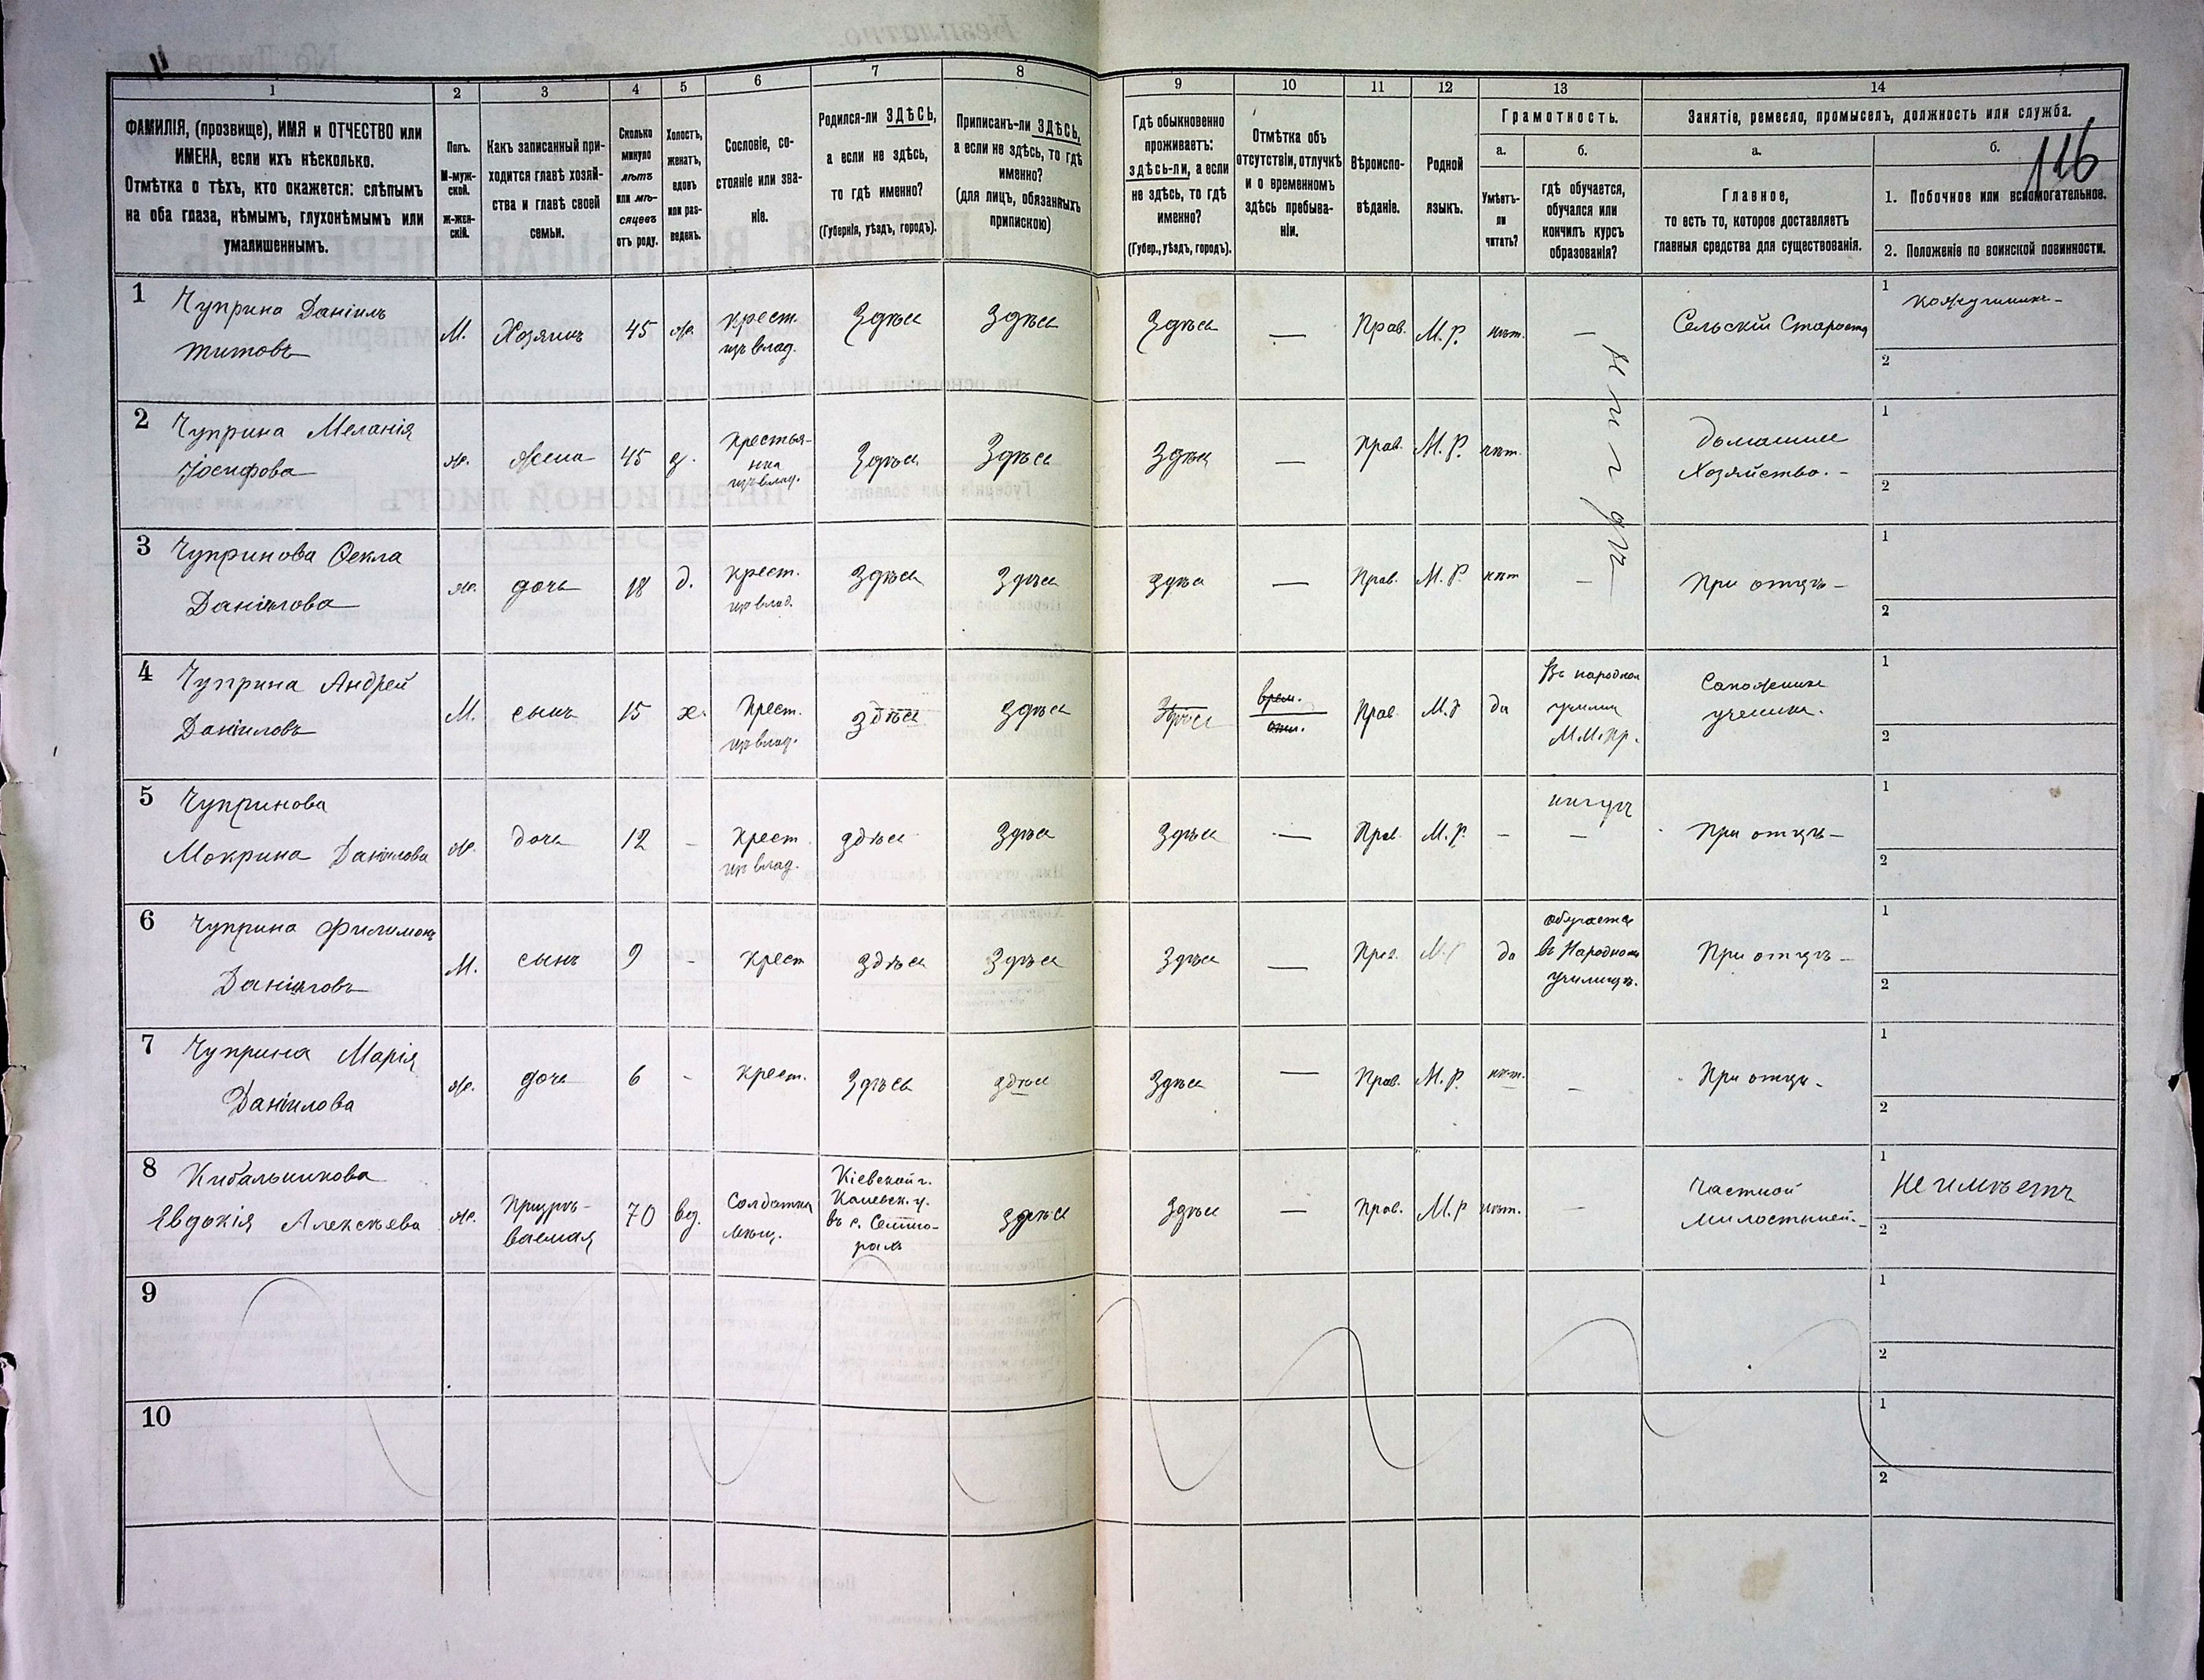 116
1 2 3 4 5 6 7 8 9 10 11 12 13 14
ФАМИЛІЯ, (прозвище), ИМЯ и ОТЧЕСТВО или
ИМЕНА, если ихъ нѣсколько.
Отмѣтка о тѣхъ, кто окажется: слѣпымъ
на оба глаза, нѣмымъ, глухонѣмымъ или
умалишеннымъ.
Полъ.
М-муж-
ской.
ж-жен-
скій.
Какъ записанный при-
ходится главѣ хозяй-
ства и главѣ своей
семьи.
Сколько
минуло
лѣтъ
или мѣ-
сяцевъ
отъ роду.
Холостъ,
женатъ,
вдовъ
или раз-
веденъ.
Сословіе, со-
стояніе или зва-
ніе.
Родился-ли ЗДѢСЬ,
а если не здѣсь,
то гдѣ именно?
(Губернія, уѣздъ, городъ).
Приписанъ-ли ЗДѢСЬ,
а если не здѣсь, то гдѣ
именно?
(для лицъ, обязанныхъ
припискою)
Гдѣ обыкновенно
проживаетъ:
здѣсь-ли, а если
не здѣсь, то гдѣ
именно?
(Губер., уѣздъ, городъ).
Отмѣтка объ
отсутствіи, отлучкѣ
и о временномъ
здѣсь пребыва-
ніи.
Вѣроиспо-
вѣданіе.
Родной
языкъ.
Грамотность.
а.
Умѣетъ-
ли
читать?
б.
гдѣ обучается,
обучался или
кончилъ курсъ
образованія?
Занятіе, ремесло, промыселъ, должность или служба.
а.
Главное,
то есть то, которое доставляетъ
главныя средства для существованія.
б.
1. Побочное или вспомогательное.
2. Положеніе по воинской повинности.
1 Чуприна Даніилъ
Титовъ
М. Хозяинъ 45 ж. крест.
изъ влад.
Здѣсь Здѣсь Здѣсь — Прав. М. Р. нѣт. —
Сельскій Староста
1 Кожушникъ
2
нигдѣ
2 Чуприна Меланія
Іосифова
ж. жена 45 з. Крестья-
нка
изъ влад.
Здѣсь Здѣсь Здѣсь — Прав. М. Р. нѣт.
Домашнее
Хозяйство. -
1
2
3 Чупринова Ѳекла
Даніилова
ж. дочь 18 д. крест.
изъ влад.
Здѣсь Здѣсь здѣсь — Прав. М. Р. нѣт —
При отцѣ -
1
2
4 Чуприна Андрей
Даніиловъ
М. сынъ 15 х. Крест.
изъ влад.
здѣсь здѣсь Здѣсь
врем.
отл.
Прав. М. Р да
Въ народном
училищ
М. Н. Пр.
Сапожник
ученик.
1
2
5 Чупринова
Мокрина Даніилова
ж. дочь 12 - Крест
изъ влад.
здѣсь Здѣсь Здѣсь — Прав. М. Р. -
нигдѣ
—
При отцѣ -
1
2
6 Чуприна Филимонъ
Даніиловъ
М. сынъ 9 - Крест здѣсь Здѣсь Здѣсь — Прав. М. Р да
обучается
въ Народномъ
училищѣ.
При отцѣ -
1
2
7 Чуприна Марія
Даніилова
ж. дочь 6 - Крест. Здѣсь здѣсь Здѣсь — Прав. М. Р. нѣт. —
При отцѣ -
1
2
8 Кибальникова
Евдокія Алексѣева
ж. Призрѣ-
ваемая
70 вд. Солдатка
Кіевской г.
Каневск. у.
въ с.
здѣсь Здѣсь — Прав. М. Р нѣт. —
Частной
милостыней. -
1 Не имѣетъ
2
9
1
2
10
1
2